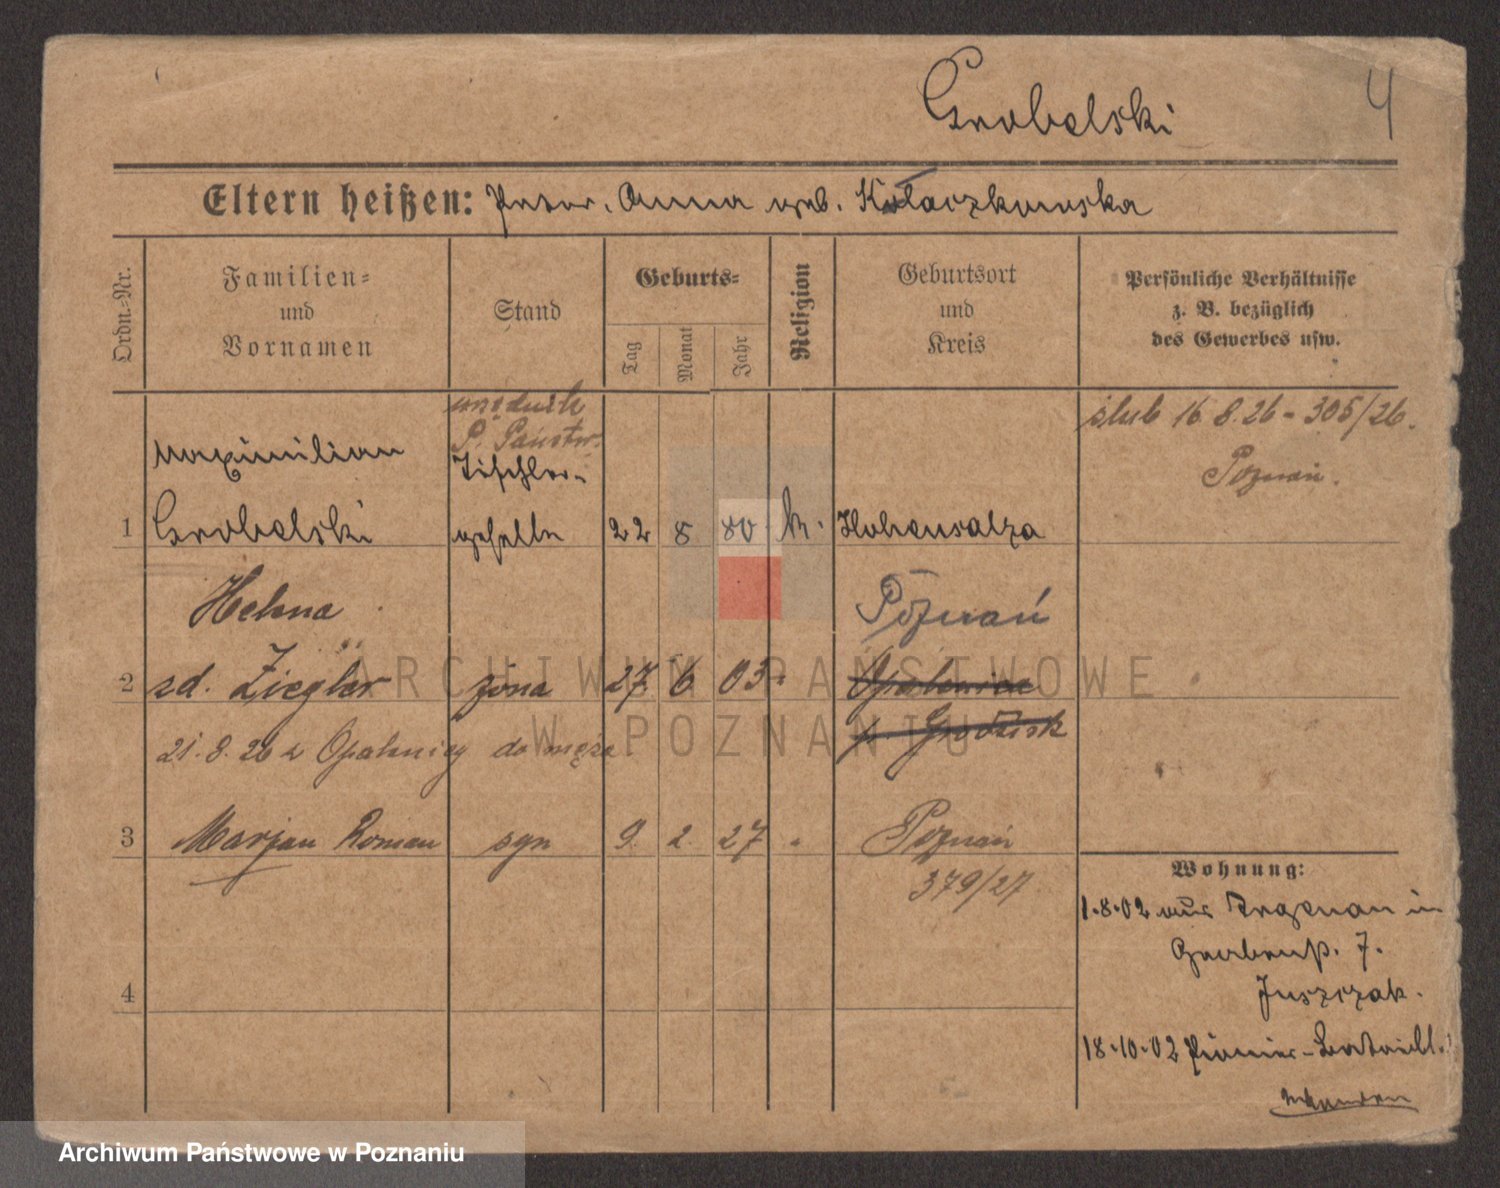 Grobelski
4
Eltern heißen: Peter. Anna geb. Kołaczkowska
Ordn.-Nr.
Familien=
und
Vornamen
Stand
Geburts=
Tag
Monat
Jahr
Religion
Geburtsort
und
Kreis
Persönliche Verhältnisse
z. B. bezüglich
des Gewerbes usw.
urzędnik
P. Państw.
ślub 16.8.26 - 305/26.
Poznań.
Maximilian
Tischler-
1 Grobelski geselle 22 8 80 k. Hohensalza
Helena Poznań
2 zd. Ziegler żona 27 6 03 " Opalenica
p. Grodzisk
21.8.26 z Opalenicy do męża
3 Marjan Roman syn 9. 2. 27 " Poznań
379/27
Wohnung:
1.8.02 aus Argenau in
Grabenstr. 7.
Juszczak.
4
18.10.02 Pionier-Bataill.
ARCHIWUM PAŃSTWOWE
W POZNANIU
Archiwum Państwowe w Poznaniu